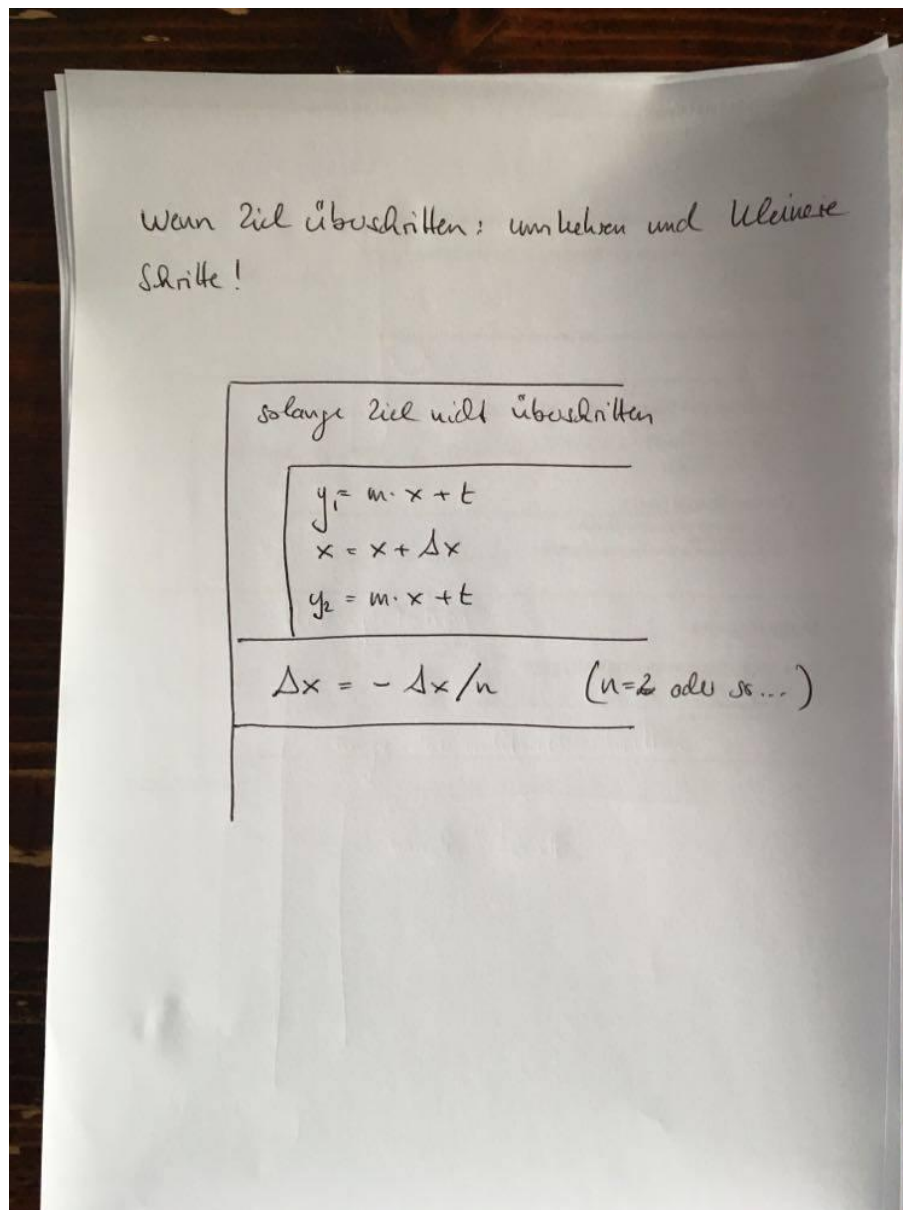 Wenn Ziel überschritten: umkehren und kleinere
Schritte!
solange Ziel nicht überschritten
y₁ = m·x + t
x = x + Δx
y₂ = m·x + t
Δx = - Δx/n (n=2 oder so...)